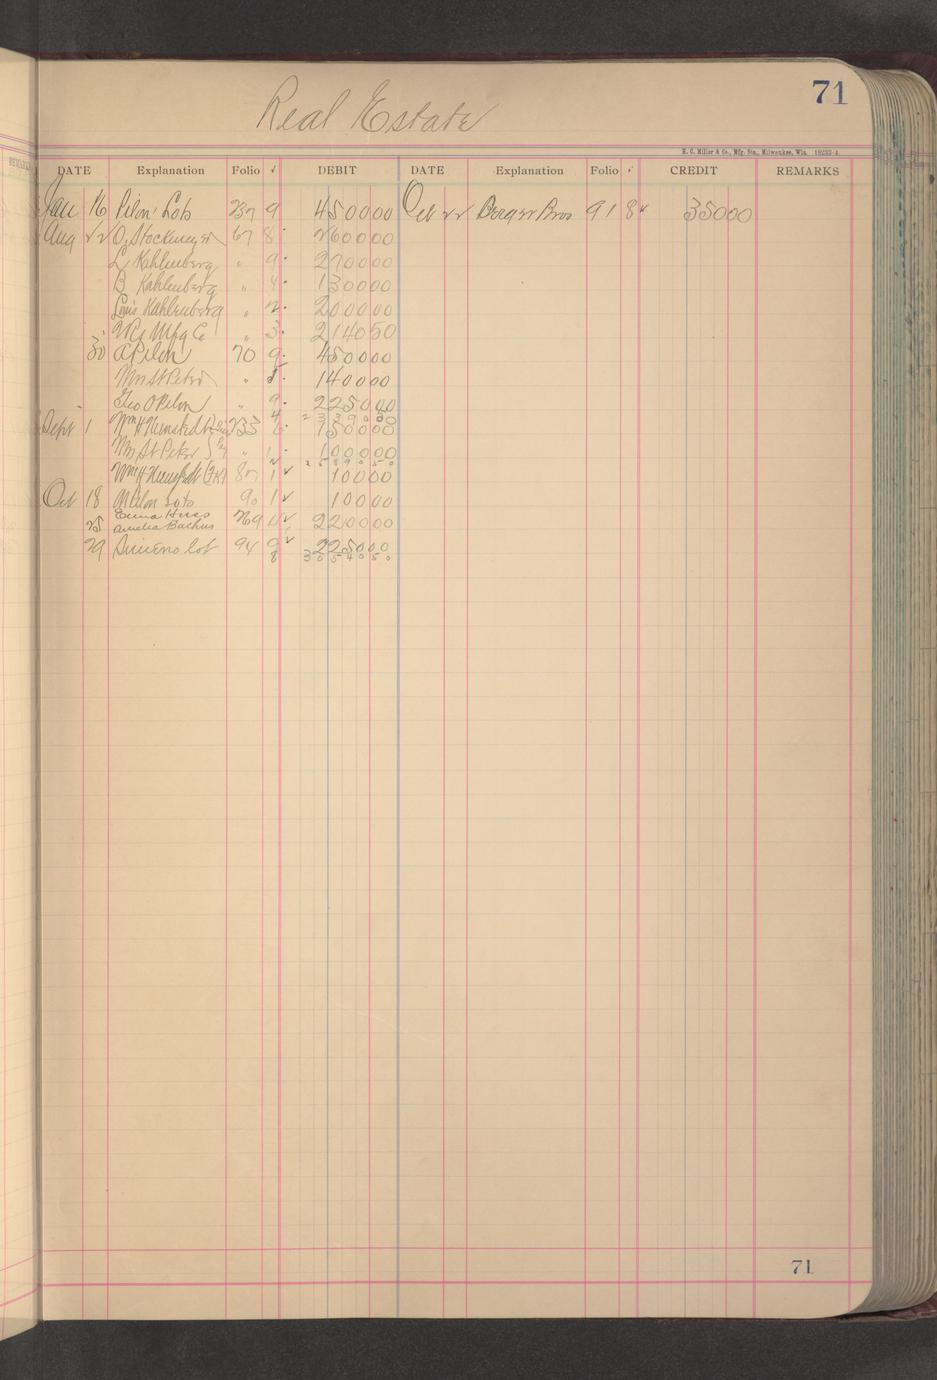 71
Real Estate
H. C. Miller & Co., Mfg. Sta., Milwaukee, Wis.
REMARKS
DATE Explanation Folio ✓ DEBIT DATE Explanation Folio ✓ CREDIT REMARKS
Jan 16 Pilon Lots 237 9 450000 Oct 22 Berger Bros 91 8 ✓ 35000
Aug 22 O. Stockmeyer 67 8 260000
L Kahlenberg " 9 270000
B Kahlenberg " 4 130000
Louis Kahlenberg " 2 200000
Mfg Co " 3 214050
30 A Pilon 70 9 450000
Wm St Peter " 140000
Geo O Pilon " 9 225040
Sept 1 Wm H 233 6 150000
Wm St Peter " 1 100000
Wm H 87 1 ✓ 10000
Oct 18 Pilon Lots 90 1 ✓ 10000
25 Emma 269 11 ✓ 220000
Amelia Backus
29 lot 94 9 ✓ 225000
8 3054050
71